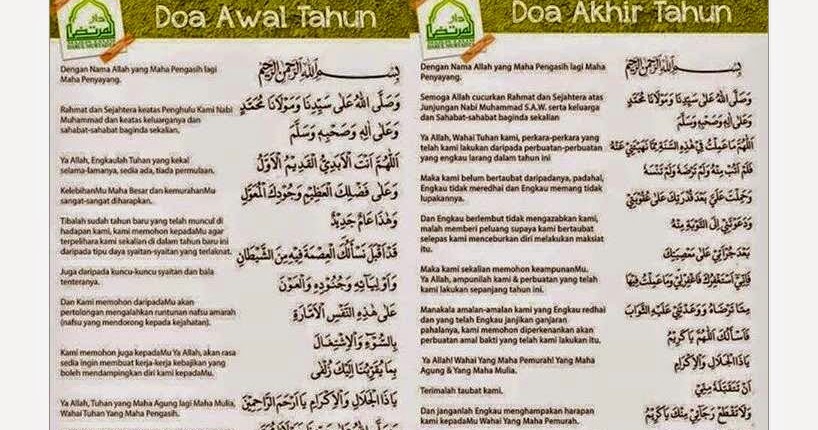 Doa Awal Tahun
Dengan Nama Allah yang Maha Pengasih lagi
Maha Penyayang.
بِسْمِ اللهِ الرَّحْمٰنِ الرَّحِيْمِ
Rahmat dan Sejahtera keatas Penghulu Kami Nabi
Muhammad dan keatas keluarganya dan
sahabat-sahabat baginda sekalian.
وَصَلَّى اللهُ عَلَى سَيِّدِنَا وَمَوْلَانَا مُحَمَّدٍ
وَعَلَى اٰلِهِ وَصَحْبِهِ وَسَلَّمَ
Ya Allah, Engkaulah Tuhan yang kekal
selama-lamanya, sedia ada, tiada permulaan.
اَللّٰهُمَّ اَنْتَ الْاَبَدِيُّ الْقَدِيْمُ الْاَوَّلُ
KelebihanMu Maha Besar dan kemurahanMu
sangat-sangat diharapkan.
وَعَلَى فَضْلِكَ الْعَظِيْمِ وَجُوْدِكَ الْمُعَوَّلِ
Tibalah sudah tahun baru yang telah muncul di
hadapan kami, kami memohon kepadaMu agar
terpelihara kami sekalian di dalam tahun baru ini
daripada tipu daya syaitan-syaitan yang terlaknat.
وَهٰذَا عَامٌ جَدِيْدٌ
قَدْ اَقْبَلَ نَسْأَلُكَ الْعِصْمَةَ فِيْهِ مِنَ الشَّيْطَانِ
Juga daripada kuncu-kuncu syaitan dan bala
tenteranya.
وَاَوْلِيَآئِهِ وَجُنُوْدِهِ وَالْعَوْنَ
Dan Kami memohon daripadaMu akan
pertolongan mengalahkan runtunan nafsu amarah
(nafsu yang mendorong kepada kejahatan).
عَلَى هٰذِهِ النَّفْسِ الْاَمَّارَةِ
بِالسُّوْءِ وَالْاِشْتِغَالَ
Kami memohon juga kepadaMu Ya Allah, akan rasa
sedia ingin membuat kerja-kerja kebajikan yang
boleh mendampingkan diri kami kepadaMu.
بِمَا يُقَرِّبُنَا اِلَيْكَ زُلْفَى
Ya Allah, Tuhan yang Maha Agung lagi Maha Mulia,
Wahai Tuhan Yang Maha Pengasih.
يَا ذَا الْجَلَالِ وَالْاِكْرَامِ يَا اَرْحَمَ الرَّاحِمِيْنَ
Doa Akhir Tahun
Dengan Nama Allah yang Maha Pengasih lagi Maha
Penyayang.
بِسْمِ اللهِ الرَّحْمٰنِ الرَّحِيْمِ
Semoga Allah cucurkan Rahmat dan Sejahtera atas
Junjungan Nabi Muhammad S.A.W. serta keluarga
dan Sahabat-sahabat baginda sekalian
وَصَلَّى اللهُ عَلَى سَيِّدِنَا وَمَوْلَانَا مُحَمَّدٍ
وَعَلَى اٰلِهِ وَصَحْبِهِ وَسَلَّمَ
Ya Allah, Wahai Tuhan kami, perkara-perkara yang
telah kami lakukan daripada perbuatan-perbuatan
yang engkau larang dalam tahun ini
اَللّٰهُمَّ مَا عَمِلْتُ فِيْ هٰذِهِ السَّنَةِ مِمَّا نَهَيْتَنِيْ عَنْهُ
Maka kami belum bertaubat daripadanya, padahal,
Engkau tidak meredhai dan Engkau memang tidak
lupakannya.
فَلَمْ اَتُبْ مِنْهُ وَلَمْ تَرْضَهُ وَلَمْ تَنْسَهُ
وَحَلُمْتَ عَلَيَّ بَعْدَ قُدْرَتِكَ عَلَى عُقُوْبَتِيْ
Dan Engkau berlembut tidak mengazabkan kami,
malah memberi peluang supaya kami bertaubat
selepas kami menceburkan diri melakukan maksiat
itu.
وَدَعَوْتَنِيْ اِلَى التَّوْبَةِ مِنْهُ
بَعْدَ جُرْأَتِيْ عَلَى مَعْصِيَتِكَ
Maka kami sekalian memohon keampunanMu.
Ya Allah, ampunilah kami & perbuatan yang telah
kami lakukan sepanjang tahun ini.
فَاِنِّيْ اَسْتَغْفِرُكَ فَاغْفِرْلِيْ وَمَا عَمِلْتُ فِيْهَا
Manakala amalan-amalan kami yang Engkau redhai
dan yang telah Engkau janjikan ganjaran
pahalanya, kami memohon diperkenankan akan
perbuatan amal bakti yang telah kami lakukan itu.
مِمَّا تَرْضَاهُ وَوَعَدْتَنِيْ عَلَيْهِ الثَّوَابَ
فَاَسْأَلُكَ اَللّٰهُمَّ يَا كَرِيْمُ
Ya Allah! Wahai Yang Maha Pemurah! Yang Maha
Agung & Yang Maha Mulia.
يَا ذَا الْجَلَالِ وَالْاِكْرَامِ
Terimalah taubat kami.
اَنْ تَتَقَبَّلَهُ مِنِّيْ
Dan janganlah Engkau menghampakan harapan
kami kepadaMu Wahai Yang Maha Pemurah.
وَلَا تَقْطَعْ رَجَآئِيْ مِنْكَ يَا كَرِيْمُ